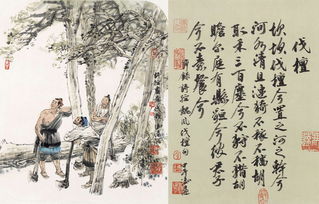 伐檀
坎坎伐檀兮置之河之幹兮
河水清且漣猗不稼不穡胡
取禾三百廛兮不狩不獵胡
瞻尔庭有縣貆兮彼君子
兮不素餐兮
錄詩經魏風伐檀句